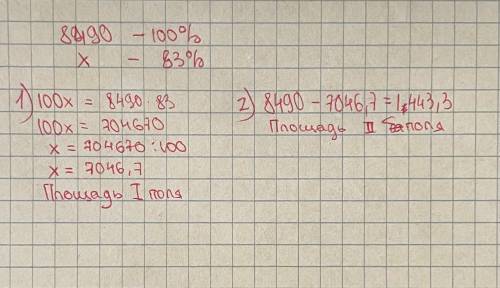 8490 – 100%
x – 83%
1) 100x = 8490 · 83
100x = 704670
x = 704670 : 100
x = 7046,7
Площадь I поля
2) 8490 – 7046,7 = 1443,3
Площадь II поля